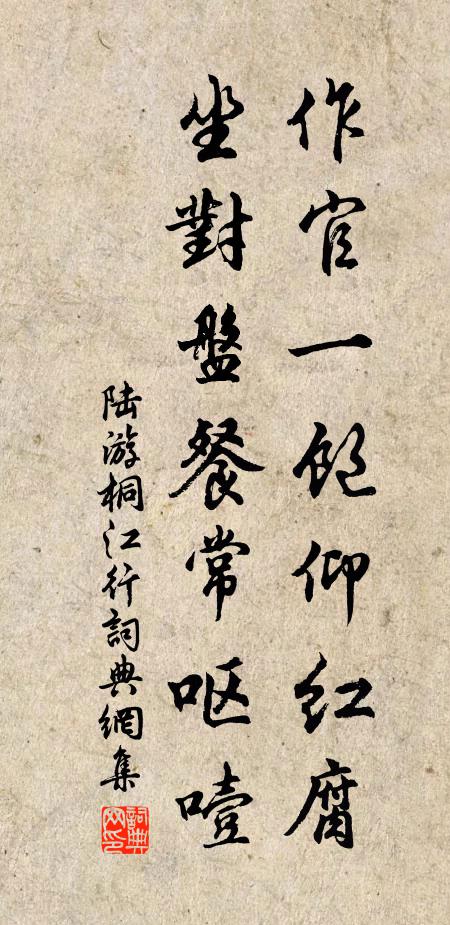 作官一飽仰紅腐
坐對盤餐常呕噎
陸游桐江行詞典網集
詞典網印